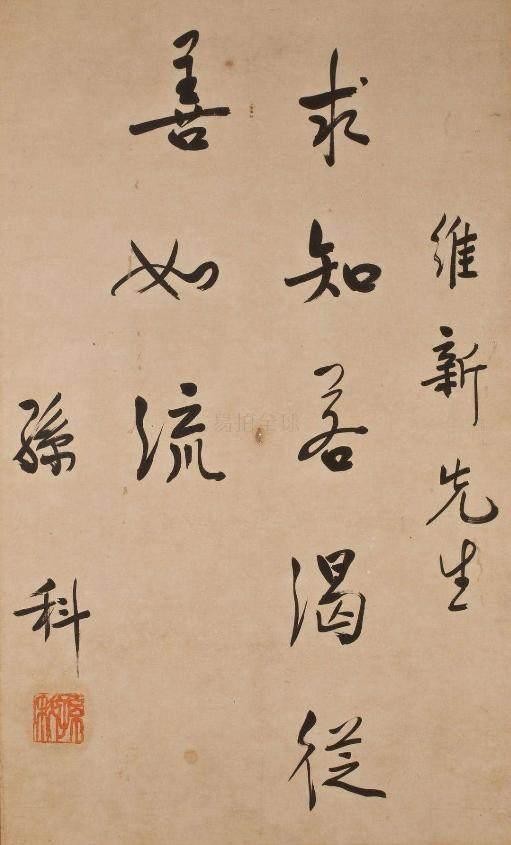 維新先生
求知若渴從
善如流
孫科
易拍全球